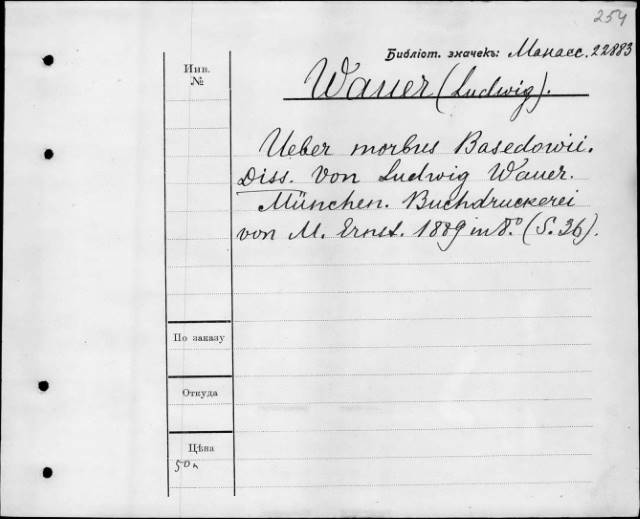 254
Библіот. значекъ: Манасс. 22883
Инв.
№
Wauer (Ludwig).
Ueber morbus Basedowii.
Diss. von Ludwig Wauer.
München. Buchdruckerei
von M. Ernst. 1889 in 8.° (S. 36).
По заказу
Откуда
Цѣна
50к